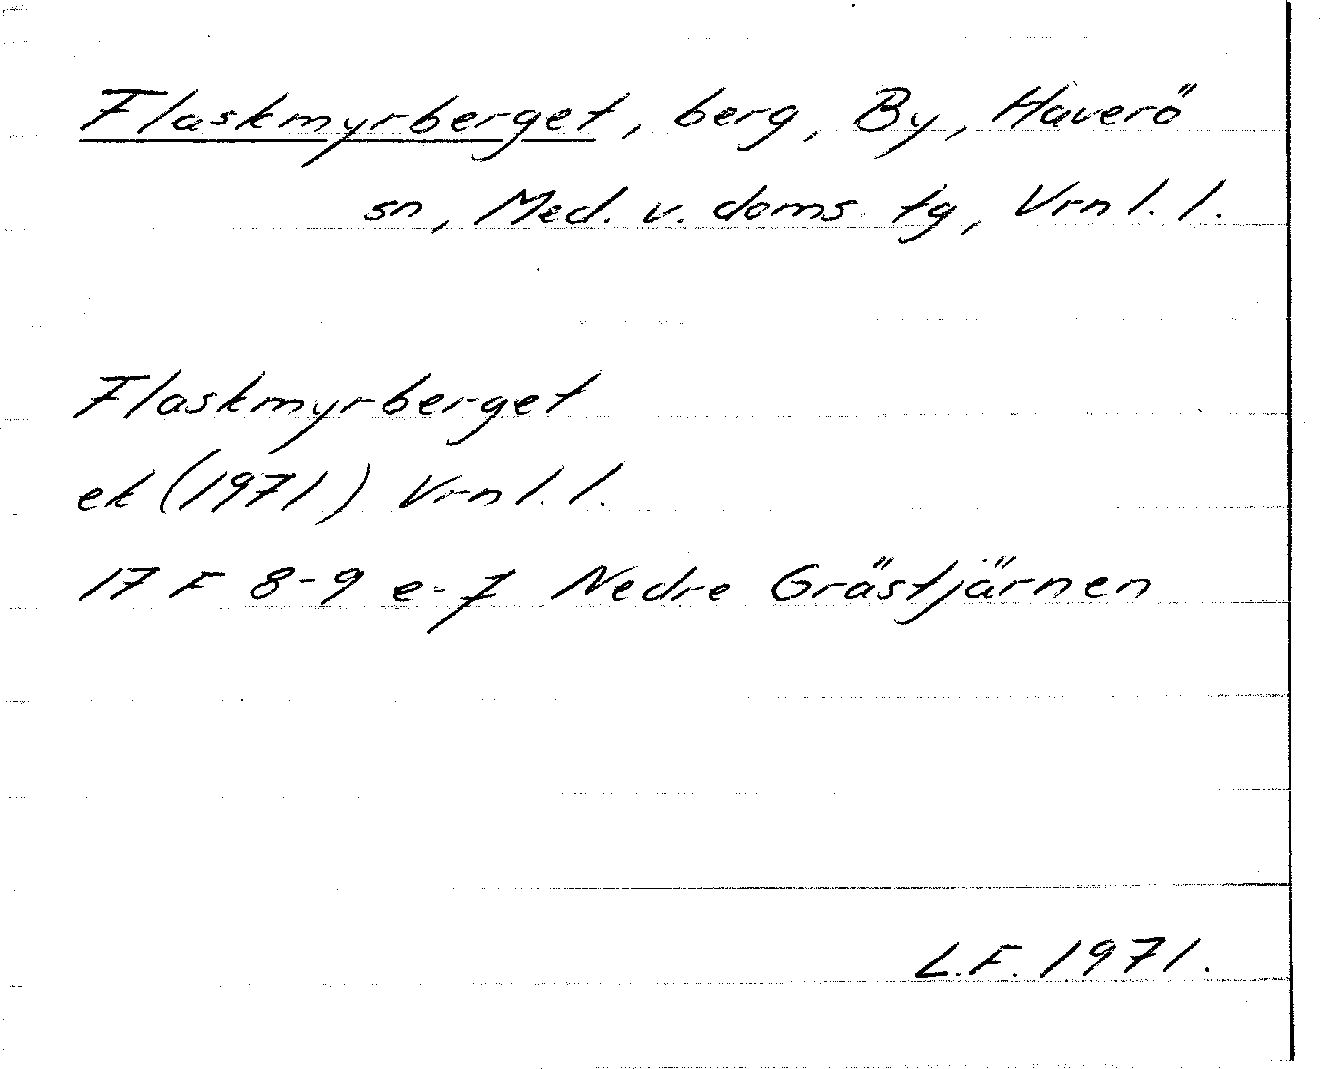 Flaskmyrberget, berg, By, Haverö
sn, Med. v. doms. tg, Vrnl. l.
Flaskmyrberget
ek (1971) Vrnl. l.
17 F 8-9 e-f Nedre Grästjärnen
L.F. 1971.